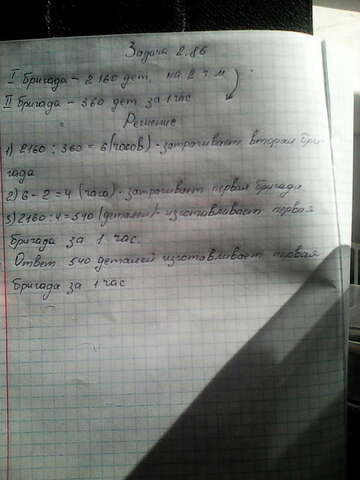 Задача 2.86
I бригада - 2160 дет, на 2 ч м
II бригада - 360 дет за 1 час
Решение
1) 2160 : 360 = 6 (часов) - затрачивает вторая бри-
гада
2) 6 - 2 = 4 (часа) - затрачивает первая бригада
3) 2160 : 4 = 540 (деталей) - изготавливает первая
бригада за 1 час.
Ответ 540 деталей изготавливает первая
бригада за 1 час